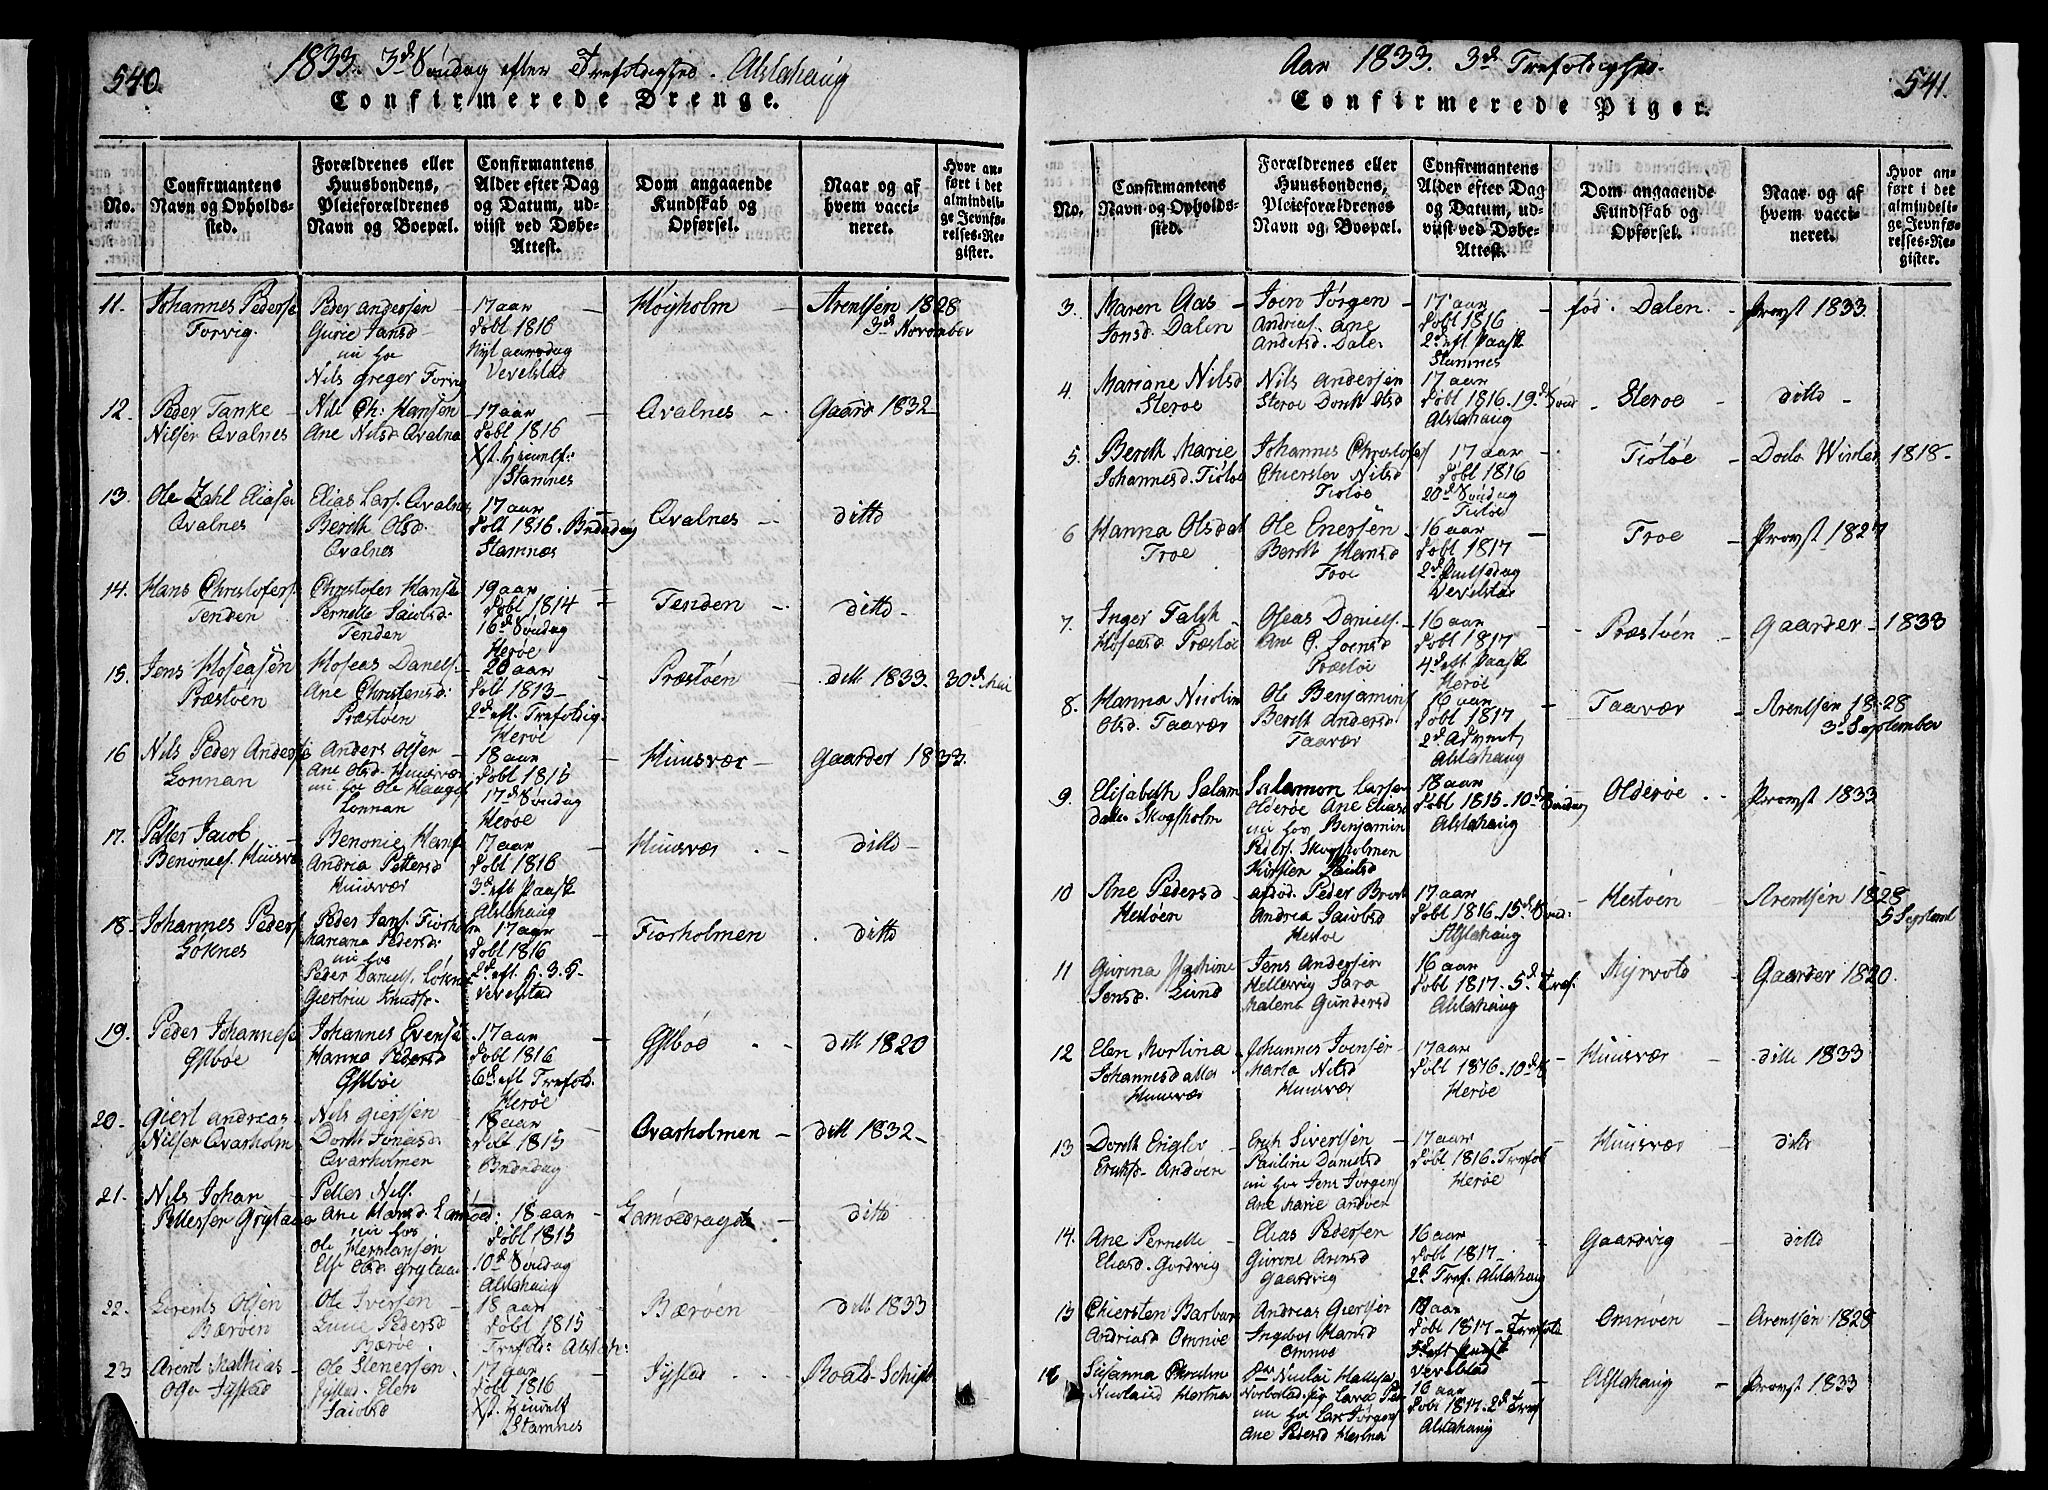 540.
1833. 3d Søndag efter Trefoldighed. Alstahaug
Confirmerede Drenge.
No.
Confirmantens Navn og Opholds-sted.
Forældrenes eller Huusbondens, Pleieforældrenes Navn og Boepæl.
Confirmantens Alder efter Dag og Datum, ud-viist ved Døbe-Attest.
Dom angaaende Kundskab og Opførsel.
Naar og af hvem vacci-neret.
Hvor an-ført i det almindeli-ge Jevnfø-relses-Re-gister.
11. Johannes Peders Forvig.
Peder Andersen
Gurie Jansd
nu hos
Nils Greger Forvig
17 aar
døbt 1816
Nyt aarsdag
Vevelstad
Høyholm
Arentsen 1828
3d November
12. Peder Tanke
Nilsen Qvalnes
Nils Ch: Hansen
Ane Nilsd Qvalnes
17 aar
døbt 1816
Xst. Himelf:
Stamnes
Qvalnes
Gaarder 1832
13. Ole Zahl Eliasen
Qvalnes
Elias Lars. Qvalnes
Berith Olsd.
Qvalnes
17 aar
døbt 1816. Bededag
Stamnæs
Qvalnes
ditto
14. Hans Christofers.
Tenden
Christofer Hanse
Pernelle Jacobsd:
Tenden
19 aar
døbt 1814
16d Søndag
Herøe
Tenden
ditto
15. Jens Hoseasen
Præstøen
Hoseas Daniels.
Ane Christensd:
Præstøen
20 aar
døbt 1813
2d eft. Trefoldig.
Herøe
Præstøen
ditt 1833. 30d Mai
16 Nils Peder Anders
Lonnan
Anders Olsen
Ane Olsd. Huusvær
nu hos Ole Haagen
Lonnan
18 aar
døbt 1815
17d Søndag
Herøe
Huusvær
Gaarder 1833.
17. Petter Jacob
Benonies. Huusvær
Benonie Hans
Andrea Pettersd
Huusvær
17 aar
døbt 1816
3d eft Paaske
Alstahaug
Huusvær
ditto
18. Johannes Peders
Løknes
Peder Jans. Fiorholm
Mariana Pedersd:
nu hos
Peder Daniels. Løknes
Giertru Knudsd.
17 aar
døbt 1816
2d eft. H. 3. K.
Vevelstad
Fiorholmen
ditto
19. Peder Johannesen
Østbøe
Johannes Evensen
Hanna Pedersd
Østbøe
17 aar
døbt 1816
6d eft Trefold.
Herøe
Østbøe
ditt 1820
20. Giert Andreas
Nilsen Qvasholm
Nils Giertsen
Dorth Joneasd
Qvarholmen
18 aar
døbt 1815
Bededag
Qvarholmen
ditt 1832
21. Nils Johan
Pettersen Grytaa
Petter Nils.
Ane Hansd Lamøed:
nu hos
Ole Hermansen
Els Olsd Grytaa
18 aar
døbt 1815
10d Søndag
Alstahaug
Lamøedraget
ditto
22. Lorents Olsen
Bærøen
Ole Iversen
Lucie Pedersd
Bærøe
18 aar
døbt 1815
Trefold: Alstah:
Bærøen
ditt 1833
23 Arent Mathias
Olsen Systad
Ole Stenersen
Systad. Elen
Jacobsd
17 aar
døbt 1816
Xst. Himelf
Stamnes
Systad
Roald Schiött
Aar 1833. 3d Trefoldighed.
541.
Confirmerede Piger.
No.
Confirmantens Navn og Opholds-sted.
Forældrenes eller Huusbondens, Pleieforældrenes Navn og Boepæl.
Confirmantens Alder efter Dag og Datum, ud-viist ved Døbe-Attest.
Dom angaaende Kundskab og Opførsel.
Naar og af hvem vacci-neret.
Hvor an-ført i det almindeli-ge Jevnfø-relses-Re-gister.
3. Maren Aas
Jonsd. Dalen
Joen Jørgen
Andrias. Ane
Andersd. Dalen
17 aar
døbt 1816
2d eft. Paaske
Stamnes
fød. Dalen.
Provst 1833
4. Mariane Nilsd
Sterøe
Nils Andersen
Sterøe Dorth Olsd
17 aar
døbt 1816. 19d Sønd
Alstahaug
Sterøe
ditto
5. Berith Marie
Johannesd. Tiøtøe
Johannes Christofers
Chiersten Nilsd
Tiøtøe
17 aar
døbt 1816
20d Søndag
Tiøtøe
Tiøtøe
Dodo Winter 1818
6 Hanna Olsdat
Troe
Ole Enersen
Berith Hansd
Troe
16 aar
døbt 1817
2d Pintsedag
Vevelstad
Troe
Provst 1827
7. Inger Falch
Hoseasd. Præstøe
Oseas Daniels.
Ane C. Loensd
Præstøe
16 aar
døbt 1817
4d eft. Paaske
Herøe
Præstøen
Gaarder 1833
8. Hanna Nicolin
Olsd. Taavær
Ole Benjamins
Berith Andersd
Taavær
16 aar
døbt 1817
2d. Advent
Alstahaug
Taavær
Arentsen 1828
3d September
9. Elisabeth Salam
datter Skogsholm
Salamon Larsen
Olderøe Ane Eliasd
nu hos Benjamin
Peders. Skogsholmen
Kirsten Paulsd
18 aar
døbt 1815. 10d Søndag
Alstahaug
Olderøe
Provst 1833
10 Ane Pedersd
Hestøen
afdød. Peder Broch
Andrea Jacobsd
Hestøe
17 aar
døbt 1816. 15d Sønd:
Alstahaug
Hestøen
Arentsen 1828
5 Septemb
11 Gurina Hashine
Jensd. Lund
Jens Andersen
Hellesvig Sara
Malena Gundersd
16 aar
døbt 1817. 5d Tref.
Alstahaug
Myrvold
Gaarder 1820.
12 Elen Mortina
Johannesdatter
Huusvær
Johannes Joensen
Marta Nilsd
Huusvær
17 aar
døbt 1816. 10d S
Herøe
Huusvær
ditto 1833
13 Dorth Engler
Eriksd. Andøen
Erich Sivertsen
Pauline Danielsd
nu hos Jens Jørgens
Ane Marie Andøen
17 aar
døbt 1816. Trefol
Herøe
Huusvær
ditto
14. Ane Pernelle
Eliasd. Gordvig
Elias Pedersen
Gurone Arensd
Gaardvig
16 aar
døbt 1817.
2d Tref. Alstahaug
Gaardvig
ditto
15 Chiersten Barbara
Andriasd Omnøe
Andreas Giertsen
Ingebor Hansd
Omnøe
aar
døbt 1817
Vevelstad
Omnøen
Arentsen 1828
16 Susanna
Nicolaisd Hestnes
nu hos Lars Jørgens
Ane Pedersd Hestnes
16 aar
døbt 1817. 2d Tref
Alstahaug
Alstahaug
Provst 1833